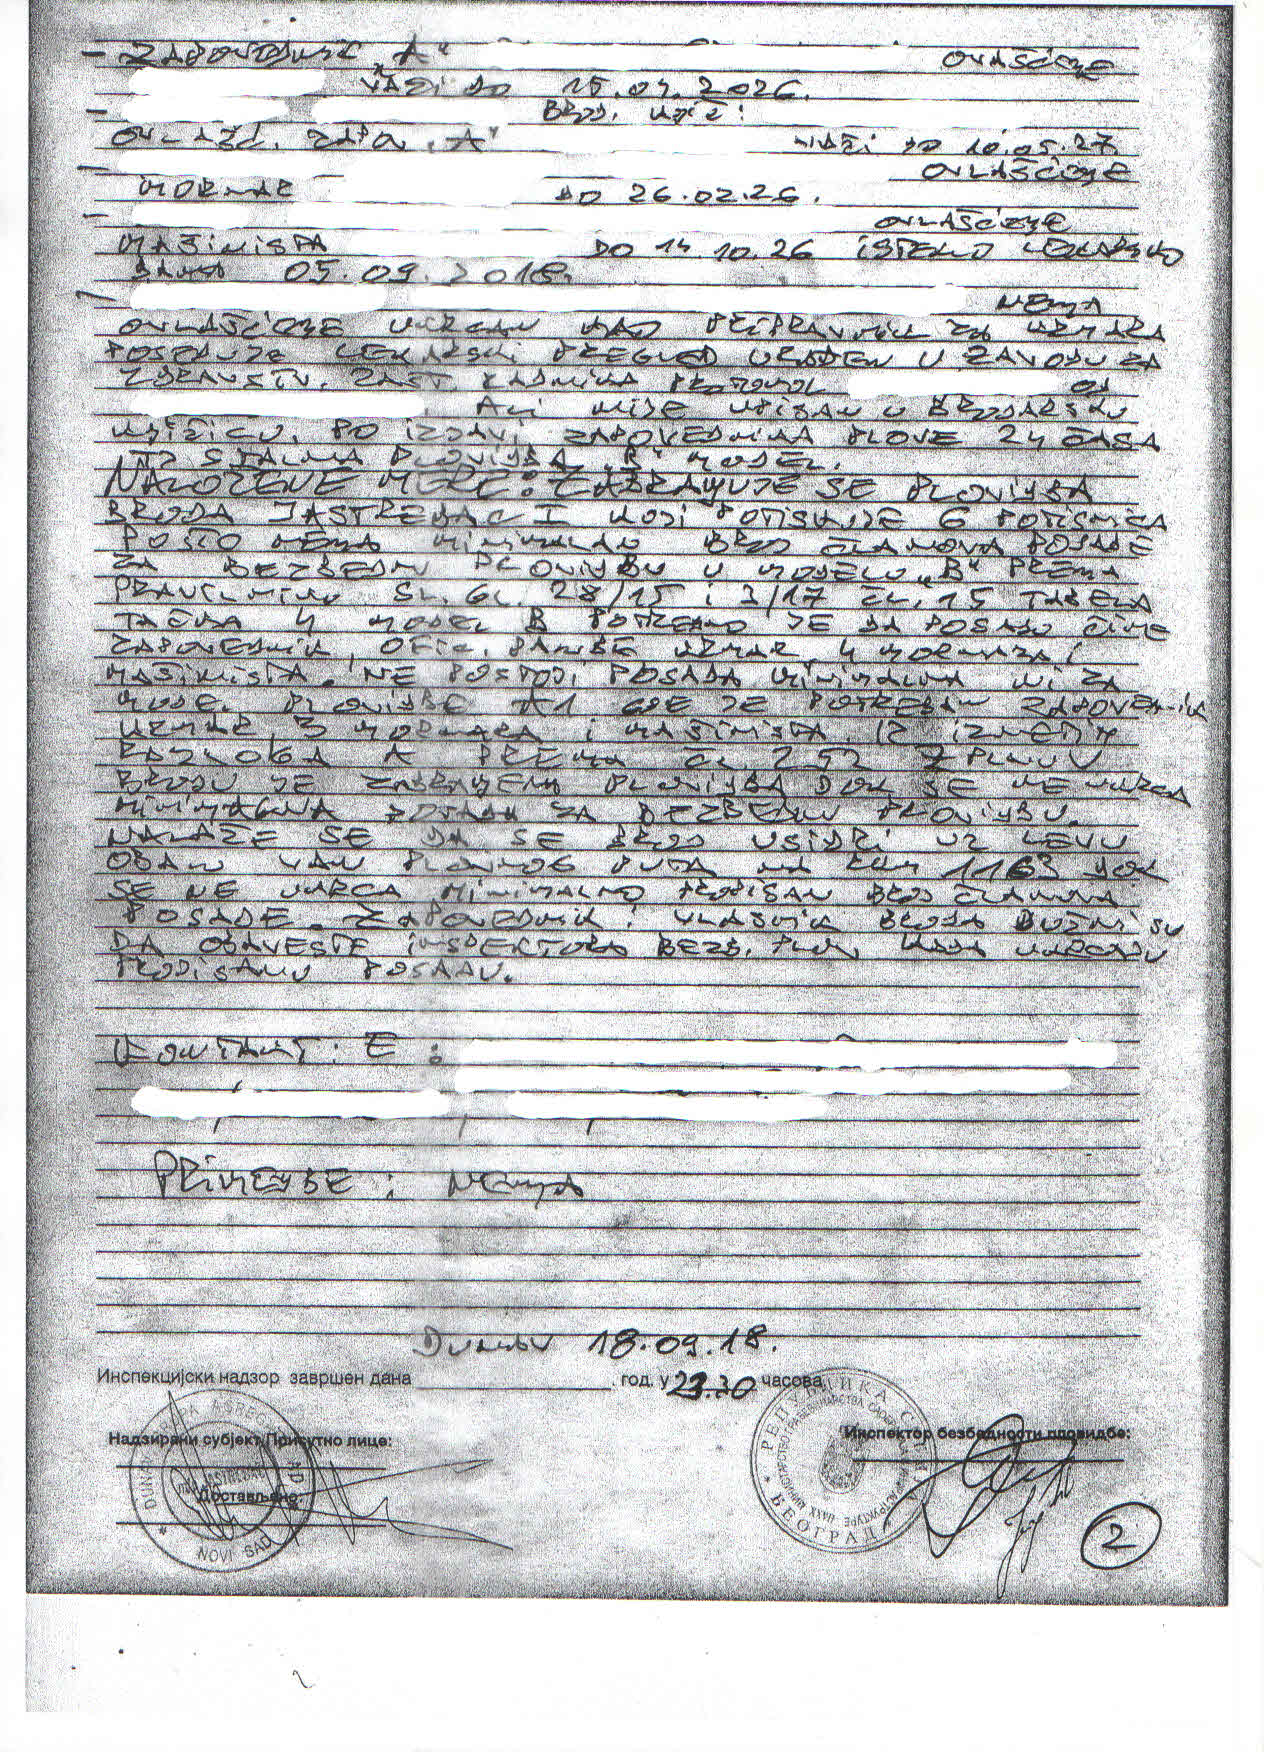 - ZAPOVEDNIK "A" OVLAŠĆENJE
VAŽI DO 15.07.2026.
- BROD. KNJIŽ:
OVLAŠĆ. ZAPOV. "A" VAŽI DO 10.05.27
- OVLAŠĆENJE
MORNAR DO 26.02.26.
- OVLAŠĆENJE
MAŠINISTA DO 14.10.26 ISTEKLO LEKARSKO
DANA 05.09.2018.
- NEMA
OVLAŠĆENJE UKRCAN KAO PRIPRAVNIK ZA KRMARA
POSEDUJE LEKARSKI PREGLED URAĐEN U ZAVODU ZA
ZDRAVSTV. ZAŠT. RADNIKA PROTOKOL OD
ALI NIJE UPISAN U BRODARSKU
KNJIŽICU. PO IZJAVI ZAPOVEDNIKA PLOVE 24 ČASA
TJ STALNA PLOVIDBA "B" MODEL.
NALOŽENE MERE: ZABRANJUJE SE PLOVIDBA
BRODA JASTREBAC I KOJI POTISKUJE 6 POTISNICA
POŠTO NEMA MINIMALAN BROJ ČLANOVA POSADE
ZA BEZBEDNU PLOVIDBU U MODELU "B" PREMA
PRAVILNIKU SL. GL. 28/15 I 3/17 ČL. 15 TABELA
TAČKA 4 MODEL B POTREBNO JE DA POSADU ČINE
ZAPOVEDNIK, OFIC. PALUBE KRMAR, 4 MORNARA I
MAŠINISTA. NE POSTOJI POSADA MINIMALNA NI ZA
MODEL PLOVIDBE A1 GDE JE POTREBAN ZAPOVEDNIK
KRMAR, 3 MORNARA I MAŠINISTA. IZ IZNETIH
RAZLOGA A PREMA ČL. 252 ZPLNUV
BRODU JE ZABRANJENA PLOVIDBA DOK SE NE UKRCA
MINIMALNA POSADA ZA BEZBEDNU PLOVIDBU.
NALAŽE SE DA SE BROD USIDRI UZ LEVU
OBALU VAN PLOVNOG PUTA NA KM 1163 DOK
SE NE UKRCA MINIMALNO PROPISAN BROJ ČLANOVA
POSADE. ZAPOVEDNIK I VLASNIK BRODA DUŽNI SU
DA OBAVESTE INSPEKTORA BEZB. PLOV. KADA UKRCAJU
PROPISANU POSADU.
KONTAKT: E:
PRIMEDBE: NEMA
DUNAV 18.09.18.
Инспекцијски надзор завршен дана . год. у 23.30 часова
Надзирани субјект/Присутно лице:
Инспектор безбедности пловидбе:
Достављено:
NOVI SAD
РЕПУБЛИКА
БЕОГРАД
2